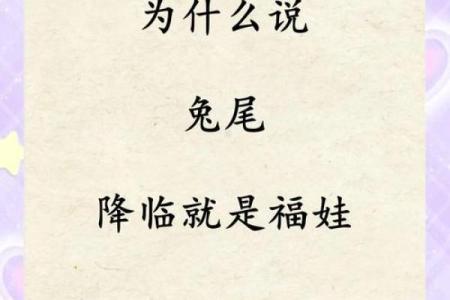 为什么说
兔尾
降临就是福娃